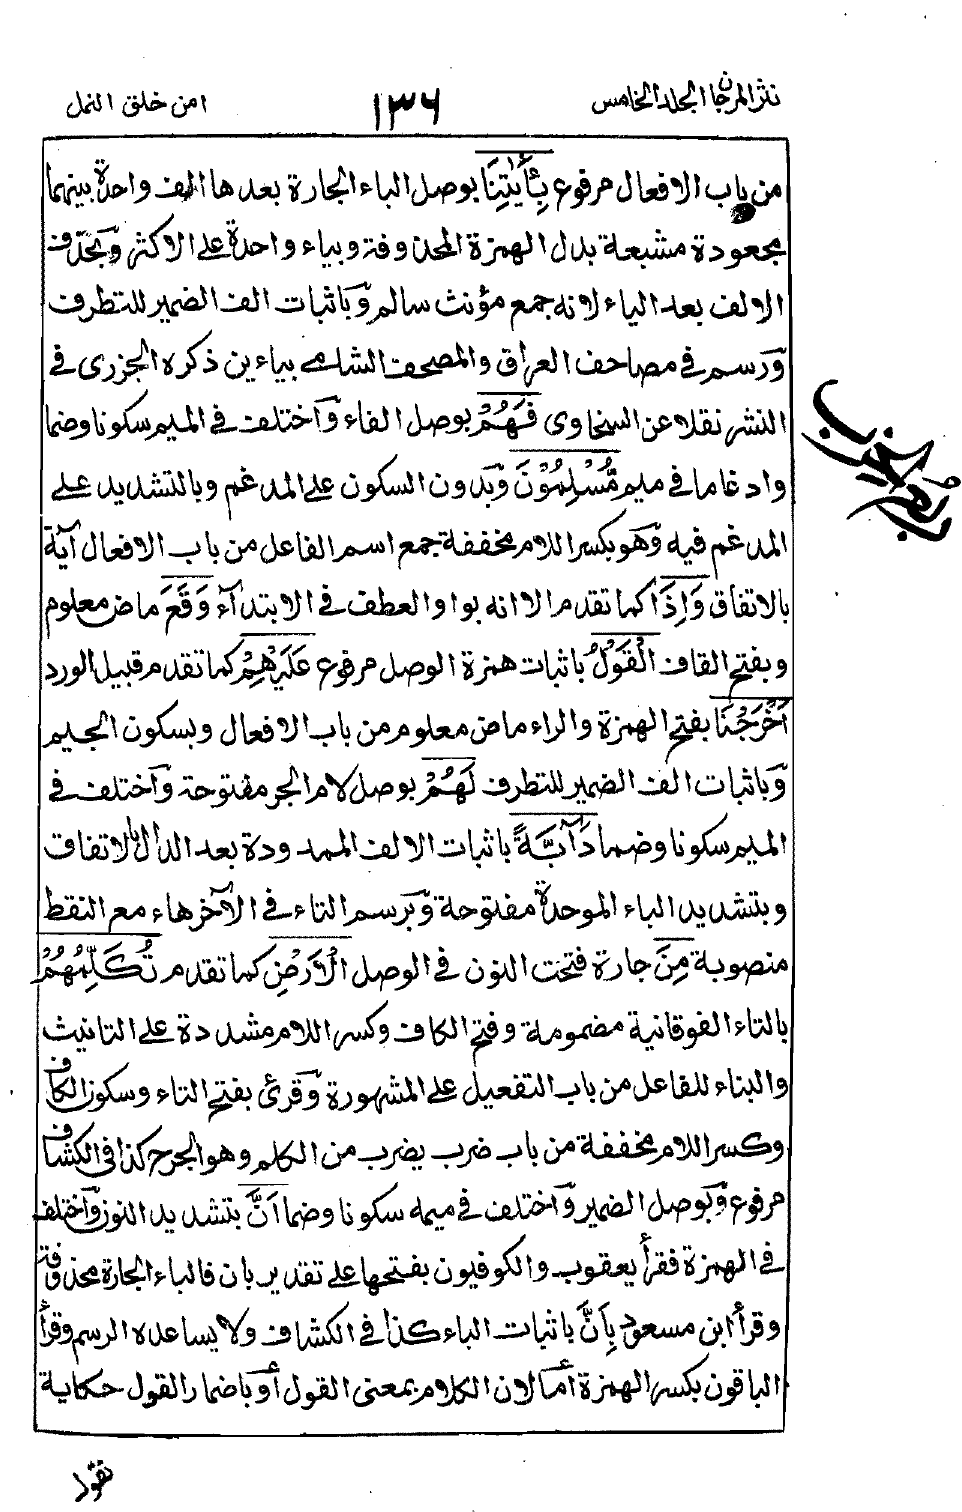 نثر المرجان الجلد الخامس
١٣٦
امن خلق النمل
من باب الافعال مرفوع بِـَٔايٰتِنَا بوصل الباء الجارة بعدها الف واحدة بينهما
مجعودة مشبعة بدل الهمزة المحذوفة وبياء واحدة على الاكثر وبحذف
الالف بعد الياء لانه جمع مؤنث سالم وباثبات الف الضمير للتطرف
ورسم فى مصاحف العراق والمصحف الشامى بياءين ذكره الجزرى فى
النشر نقلا عن السخاوى فَهُمْ بوصل الفاء واختلف فى الميم سكونا وضما
وادغاما فى ميم مُّسْلِمُوْنَ وبدون السكون على المدغم وبالتشديد على
المدغم فيه وهو بكسر اللام مخففة جمع اسم الفاعل من باب الافعال آية
بالاتفاق وَاِذَا كما تقدم الا انه بواو العطف فى الابتدآء وَقَعَ ماض معلوم
وبفتح القاف الْقَوْلُ باثبات همزة الوصل مرفوع عَلَيْهِمْ كما تقدم قبيل الورد
اَخْرَجْنَا بفتح الهمزة والراء ماض معلوم من باب الافعال وبسكون الجيم
وباثبات الف الضمير للتطرف لَهُمْ بوصل لام الجر مفتوحة واختلف فى
الميم سكونا وضما دَآبَّةً باثبات الالف الممدودة بعد الدال بالاتفاق
وبتشديد الباء الموحدة مفتوحة وبرسم التاء فى الآخر هاء مع النقط
منصوبة مِنَ جارة فتحت النون فى الوصل الْاَرْضِ كما تقدم تُكَلِّمُهُمْ
بالتاء الفوقانية مضمومة وفتح الكاف وكسر اللام مشددة على التانيث
والبناء للفاعل من باب التفعيل على المشهورة وقرئ بفتح التاء وسكون الكاف
وكسر اللام مخففة من باب ضرب يضرب من الكلم وهو الجرح كذا فى الكشاف
مرفوع وبوصل الضمير واختلف فى ميمه سكونا وضما اَنَّ بتشديد النون واختلف
فى الهمزة فقرأ يعقوب والكوفيون بفتحها على تقدير بان فالباء الجارة محذوفة
وقرأ ابن مسعود بِاَنَّ باثبات الباء كذا فى الكشاف ولا يساعده الرسم وقرأ
الباقون بكسر الهمزة اما لان الكلام بمعنى القول أو باضمار القول حكاية